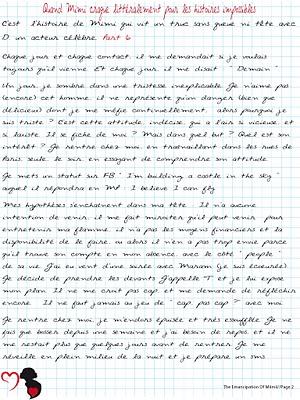 Quand Mimi craque littéralement pour les histoires impossibles
C'est l'histoire de Mimi qui vit un truc sans queue ni tête avec
D. un acteur célèbre. Part 6
Chaque jour et chaque contact, il me demandait si je voulais
toujours qu'il vienne. Et chaque jour, il me disait " Demain "
Un jour, je sombre dans une tristesse inexplicable. Je n'aime pas
(encore) cet homme, il ne représente qu'un danger (bien que
délicieux) dont je me méfie continuellement, alors pourquoi je
suis triste ? C'est cette attitude, indécise, qui a l'air si vicieuse, et
si lassite. Il se fiche de moi ? Mais dans quel but ? Quel est son
intérêt ? Je rentre chez moi, en travaillant dans les rues de
Paris, seule, le soir, en essayant de comprendre son attitude.
Je mets un statut sur FB " I'm building a castle in the sky "
auquel il répondra en MP : I believe I can fly.
Mes hypothèses s'enchaînent dans ma tête. Il n'a aucune
intention de venir, il me fait miroiter qu'il peut venir, pour
entretenir ma flamme, il n'a pas les moyens financiers et la
disponibilité de le faire, ou alors il n'en a pas trop envie, parce
qu'il trouve son compte en mon absence, avec le côté " people "
de sa vie. J'ai eu vent d'une soirée avec
Je décide de prendre les devants. J'appelle T. et je lui expose
mon plan. Il ne me croit pas cap, et me demande de réfléchir
encore. Il ne faut jamais au jeu de " cap, pas cap ? " avec moi.
Je rentre chez moi, je m'endors épuisée et très essoufflée. Je ne
fais que bosser depuis une semaine, et j'ai besoin de repos, et il ne
me restait plus que quelques jours avant de rentrer. Je me
réveille en plein milieu de la nuit, et je prépare un sms
The Emancipation Of Mimii/ Page 2